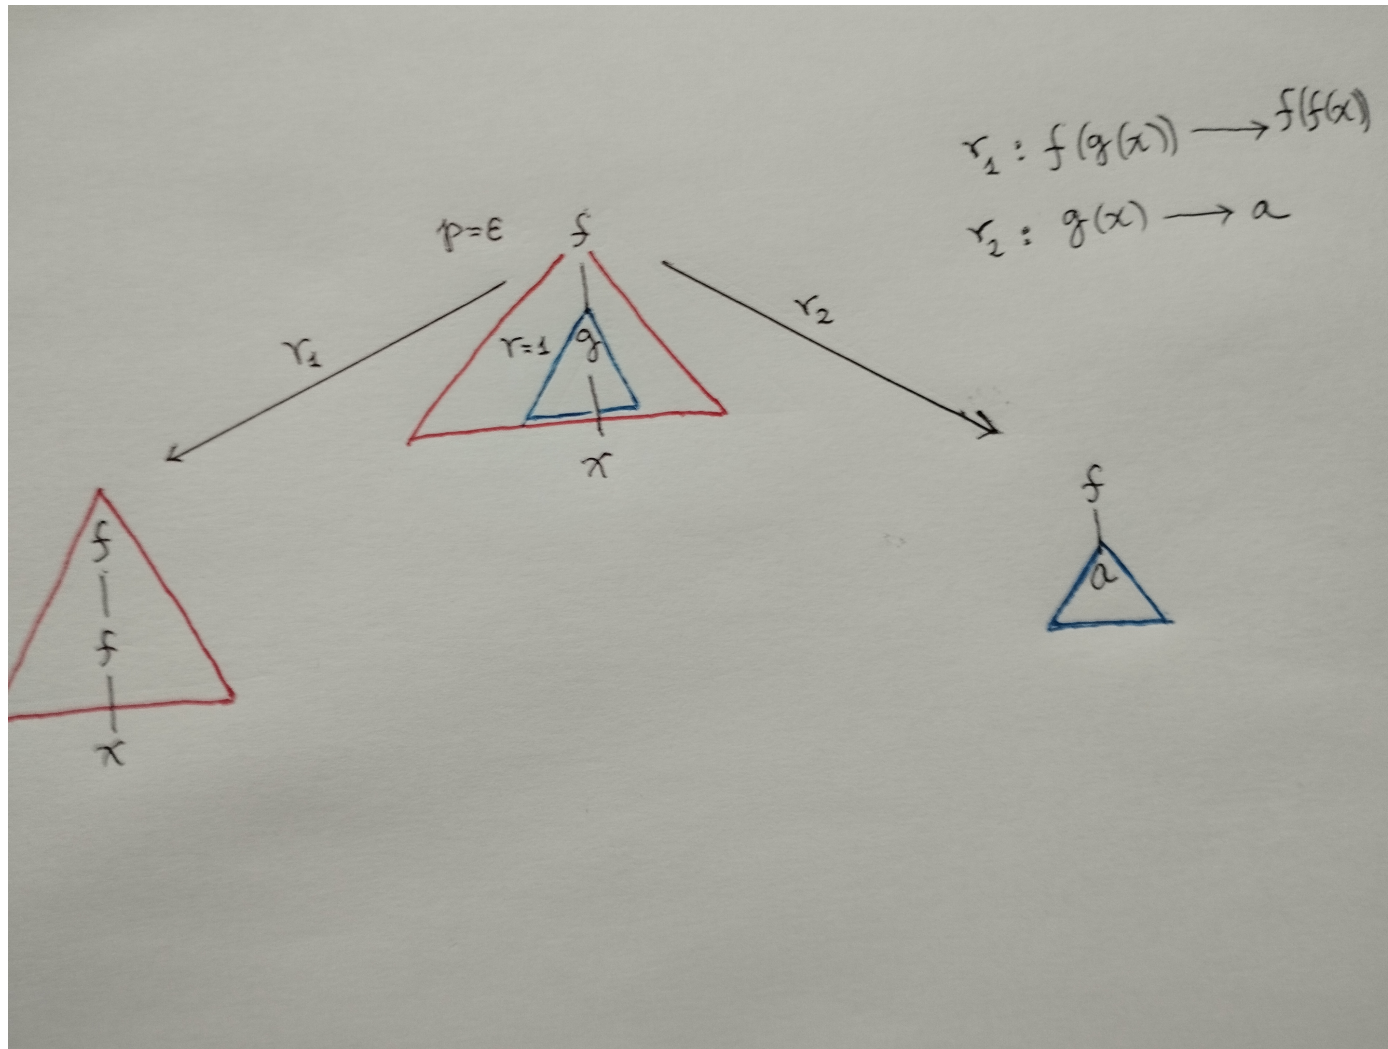 r₁ : f(g(x)) → f(f(x))
r₂ : g(x) → a
p=ε f
r₁
r=1 g
r₂
x
f
f
x
f
a